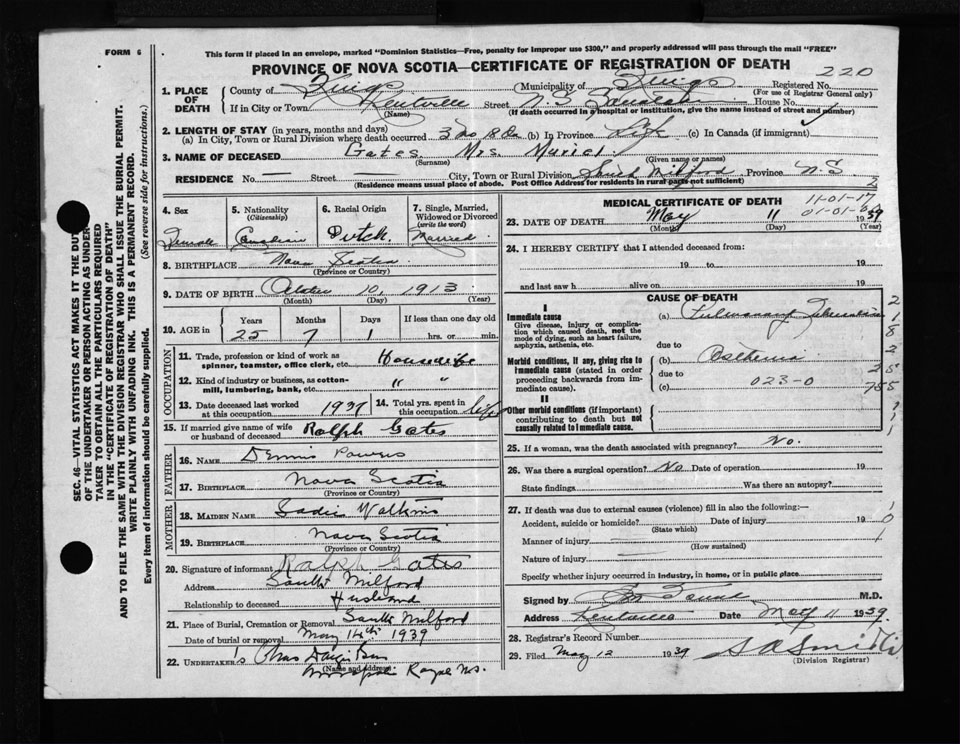 FORM 6
This form if placed in an envelope, marked "Dominion Statistics—Free, penalty for improper use $300," and properly addressed will pass through the mail "FREE"
PROVINCE OF NOVA SCOTIA—CERTIFICATE OF REGISTRATION OF DEATH
220
SEC. 46—VITAL STATISTICS ACT MAKES IT THE DUTY
OF THE UNDERTAKER OR PERSON ACTING AS UNDER-
TAKER TO OBTAIN ALL THE PARTICULARS REQUIRED
IN THE "CERTIFICATE OF REGISTRATION OF DEATH"
AND TO FILE THE SAME WITH THE DIVISION REGISTRAR WHO SHALL ISSUE THE BURIAL PERMIT.
WRITE PLAINLY WITH UNFADING INK. THIS IS A PERMANENT RECORD.
Every item of information should be carefully supplied. (See reverse side for instructions.)
1. PLACE OF DEATH County of Kings Municipality of Kings Registered No.
(For use of Registrar General only)
If in City or Town Kentville Street N.S. House No.
(Name) (If death occurred in a hospital or institution, give the name instead of street and number)
2. LENGTH OF STAY (in years, months and days)
(a) In City, Town or Rural Division where death occurred 3 mo 8 da (b) In Province Life (c) In Canada (if immigrant)
3. NAME OF DECEASED Gates Mrs. Muriel
(Surname) (Given name or names)
RESIDENCE No. — Street — City, Town or Rural Division South Milford Province N.S.
(Residence means usual place of abode. Post Office Address for residents in rural parts not sufficient)
2
4. Sex Female
5. Nationality (Citizenship) Canadian
6. Racial Origin Dutch
7. Single, Married, Widowed or Divorced (write the word) Married
8. BIRTHPLACE Nova Scotia
(Province or Country)
9. DATE OF BIRTH October 10, 1913
(Month) (Day) (Year)
10. AGE in Years 25 Months 7 Days 1 If less than one day hrs. or min.
OCCUPATION
11. Trade, profession or kind of work as spinner, teamster, office clerk, etc. Housewife
12. Kind of industry or business, as cotton-mill, lumbering, bank, etc. " "
13. Date deceased last worked at this occupation 1937
14. Total yrs. spent in this occupation
15. If married give name of wife or husband of deceased Ralph Gates
FATHER
16. NAME Dennis Powers
17. BIRTHPLACE Nova Scotia
(Province or Country)
MOTHER
18. MAIDEN NAME Sadie Watkins
19. BIRTHPLACE Nova Scotia
(Province or Country)
20. Signature of informant Ralph Gates
Address South Milford
Relationship to deceased Husband
21. Place of Burial, Cremation or Removal South Milford
Date of burial or removal May 14th 1939
22. UNDERTAKER'S
(Name and Address)
Annapolis Royal N.S.
MEDICAL CERTIFICATE OF DEATH
11-01-17
01-01-2
23. DATE OF DEATH May 11 1939
(Month) (Day) (Year)
24. I HEREBY CERTIFY that I attended deceased from:
19 to 19
and last saw h alive on 19
CAUSE OF DEATH
I
Immediate cause
Give disease, injury, or complication which caused death, not the mode of dying, such as heart failure, asphyxia, asthenia, etc.
(a) Pulmonary Tuberculosis
due to
Morbid conditions, if any, giving rise to immediate cause (stated in order proceeding backwards from immediate cause).
(b) Asthenia
due to
(c) 023-0
II
Other morbid conditions (if important) contributing to death but not causally related to immediate cause.
25. If a woman, was the death associated with pregnancy? No.
26. Was there a surgical operation? No Date of operation 19
State findings Was there an autopsy?
27. If death was due to external causes (violence) fill in also the following:—
Accident, suicide or homicide? Date of injury 19
(State which)
Manner of injury
(How sustained)
Nature of injury
Specify whether injury occurred in industry, in home, or in public place
Signed by M.D.
Address Kentville Date May 11 1939
28. Registrar's Record Number
29. Filed May 12 1939 S A Smith
(Division Registrar)